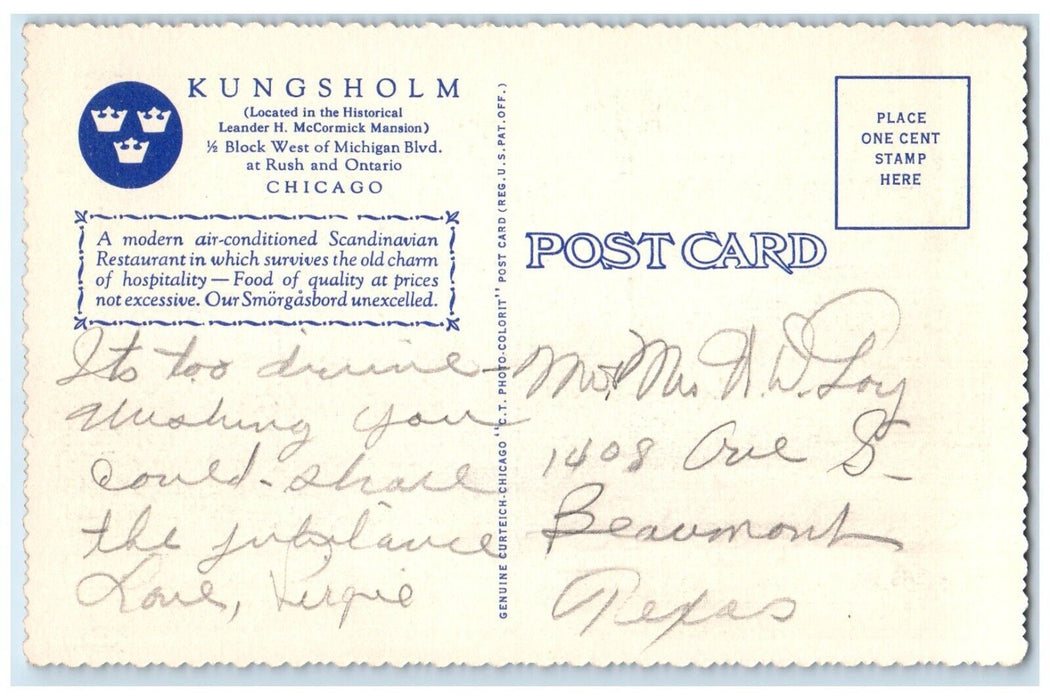 KUNGSHOLM
(Located in the Historical
Leander H. McCormick Mansion)
½ Block West of Michigan Blvd.
at Rush and Ontario
CHICAGO
A modern air-conditioned Scandinavian
Restaurant in which survives the old charm
of hospitality — Food of quality at prices
not excessive. Our Smörgåsbord unexcelled.
Its too divine -
Wishing you
could - share
the jubilance
Love, Virgie
GENUINE CURTEICH-CHICAGO "C.T. PHOTO-COLORIT" POST CARD (REG. U.S. PAT. OFF.)
PLACE
ONE CENT
STAMP
HERE
POST CARD
Mr & Mrs W. D. Loy
1408 Ave S-
Beaumont
Texas